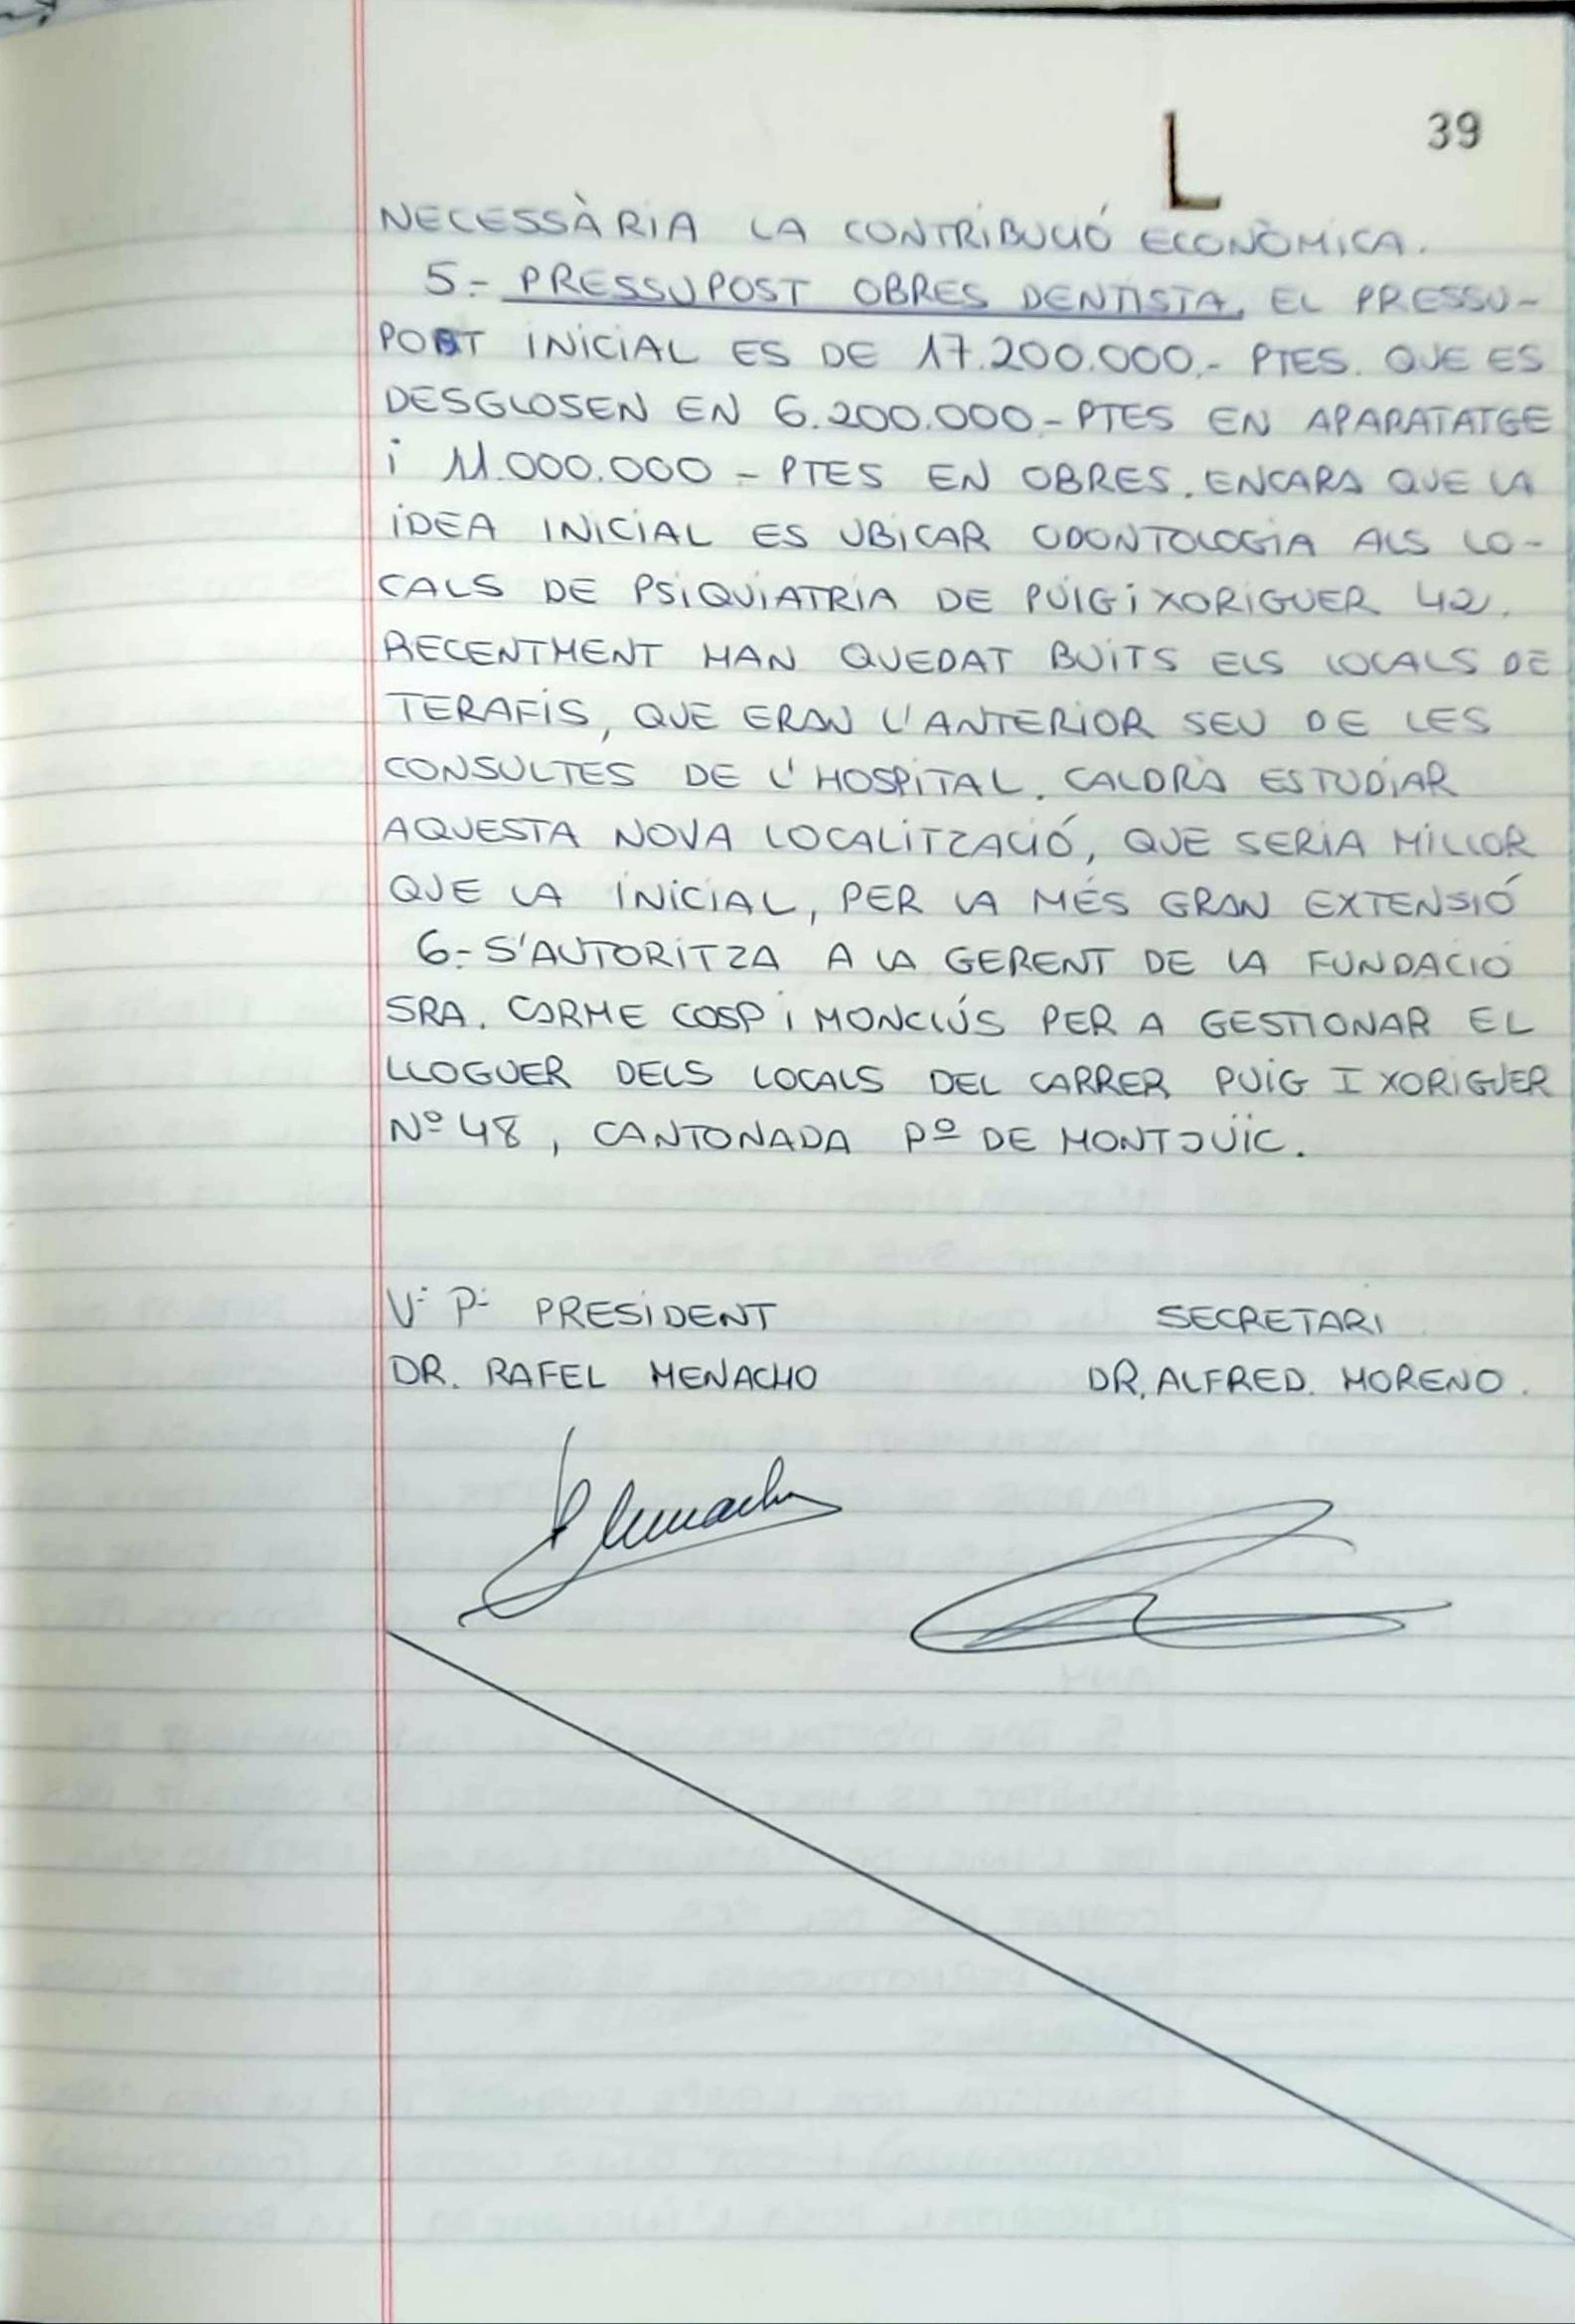 L 39
NECESSÀRIA LA CONTRIBUCIÓ ECONÒMICA.
5.- PRESSUPOST OBRES DENTISTA, EL PRESSU-
POST INICIAL ES DE 17.200.000.- PTES. QUE ES
DESGLOSEN EN 6.200.000.- PTES EN APARATATGE
i 11.000.000 - PTES EN OBRES. ENCARA QUE LA
IDEA INICIAL ES UBICAR ODONTOLOGIA ALS LO-
CALS DE PSIQUIATRIA DE PUIG i XORIGUER 42.
RECENTMENT HAN QUEDAT BUITS ELS LOCALS DE
TERAFIS, QUE ERAN L'ANTERIOR SEU DE LES
CONSULTES DE L'HOSPITAL. CALDRÀ ESTUDIAR
AQUESTA NOVA LOCALITZACIÓ, QUE SERIA MILLOR
QUE LA INICIAL, PER LA MÉS GRAN EXTENSIÓ
6.- S'AUTORITZA A LA GERENT DE LA FUNDACIÓ
SRA. CARME COSP i MONCLÚS PER A GESTIONAR EL
LLOGUER DELS LOCALS DEL CARRER PUIG I XORIGUER
Nº 48, CANTONADA Pº DE MONTJUÏC.
V. P. PRESIDENT SECRETARI
DR. RAFEL MENACHO DR. ALFRED. MORENO.